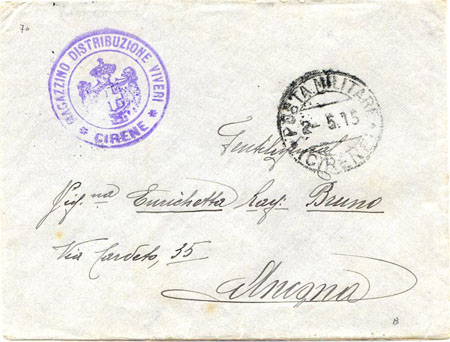 70
MAGAZZINO DISTRIBUZIONE VIVERI
* CIRENE *
POSTA MILITARE
2-5.15
(CIRENE)
Gentilissima
Sig.na Enrichetta Rag. Bruno
Via Cardeto, 35